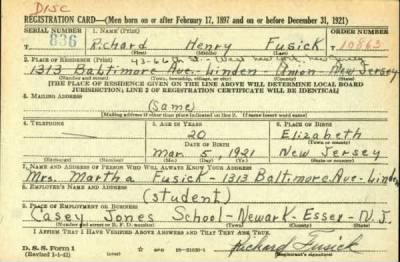 DISC
REGISTRATION CARD—(Men born on or after February 17, 1897 and on or before December 31, 1921)
SERIAL NUMBER 1. NAME (Print) ORDER NUMBER
836 Richard Henry Fusick 10863
(First) (Middle) (Last)
43-66th St.- West New York, New Jersey
2. PLACE OF RESIDENCE (Print)
1313 Baltimore Ave.-Linden-Union-New Jersey
(Number and street) (Town, township, village, or city) (County) (State)
[THE PLACE OF RESIDENCE GIVEN ON THE LINE ABOVE WILL DETERMINE LOCAL BOARD
JURISDICTION; LINE 2 OF REGISTRATION CERTIFICATE WILL BE IDENTICAL]
3. MAILING ADDRESS
(same)
[Mailing address if other than place indicated on line 2. If same insert word same]
4. TELEPHONE 5. AGE IN YEARS 6. PLACE OF BIRTH
20 Elizabeth
DATE OF BIRTH (Town or county)
Mar. 5, 1921 New Jersey
(Exchange) (Number) (Mo.) (Day) (Yr.) (State or country)
7. NAME AND ADDRESS OF PERSON WHO WILL ALWAYS KNOW YOUR ADDRESS
Mrs. Martha Fusick-1313 Baltimore Ave-Linden
8. EMPLOYER'S NAME AND ADDRESS
(student)
9. PLACE OF EMPLOYMENT OR BUSINESS
Casey Jones School-Newark-Essex-N.J.
(Number and street or R. F. D. number) (Town) (County) (State)
I AFFIRM THAT I HAVE VERIFIED ABOVE ANSWERS AND THAT THEY ARE TRUE.
D. S. S. Form 1
(Revised 1-1-42) Richard Fusick
(Registrant's signature)